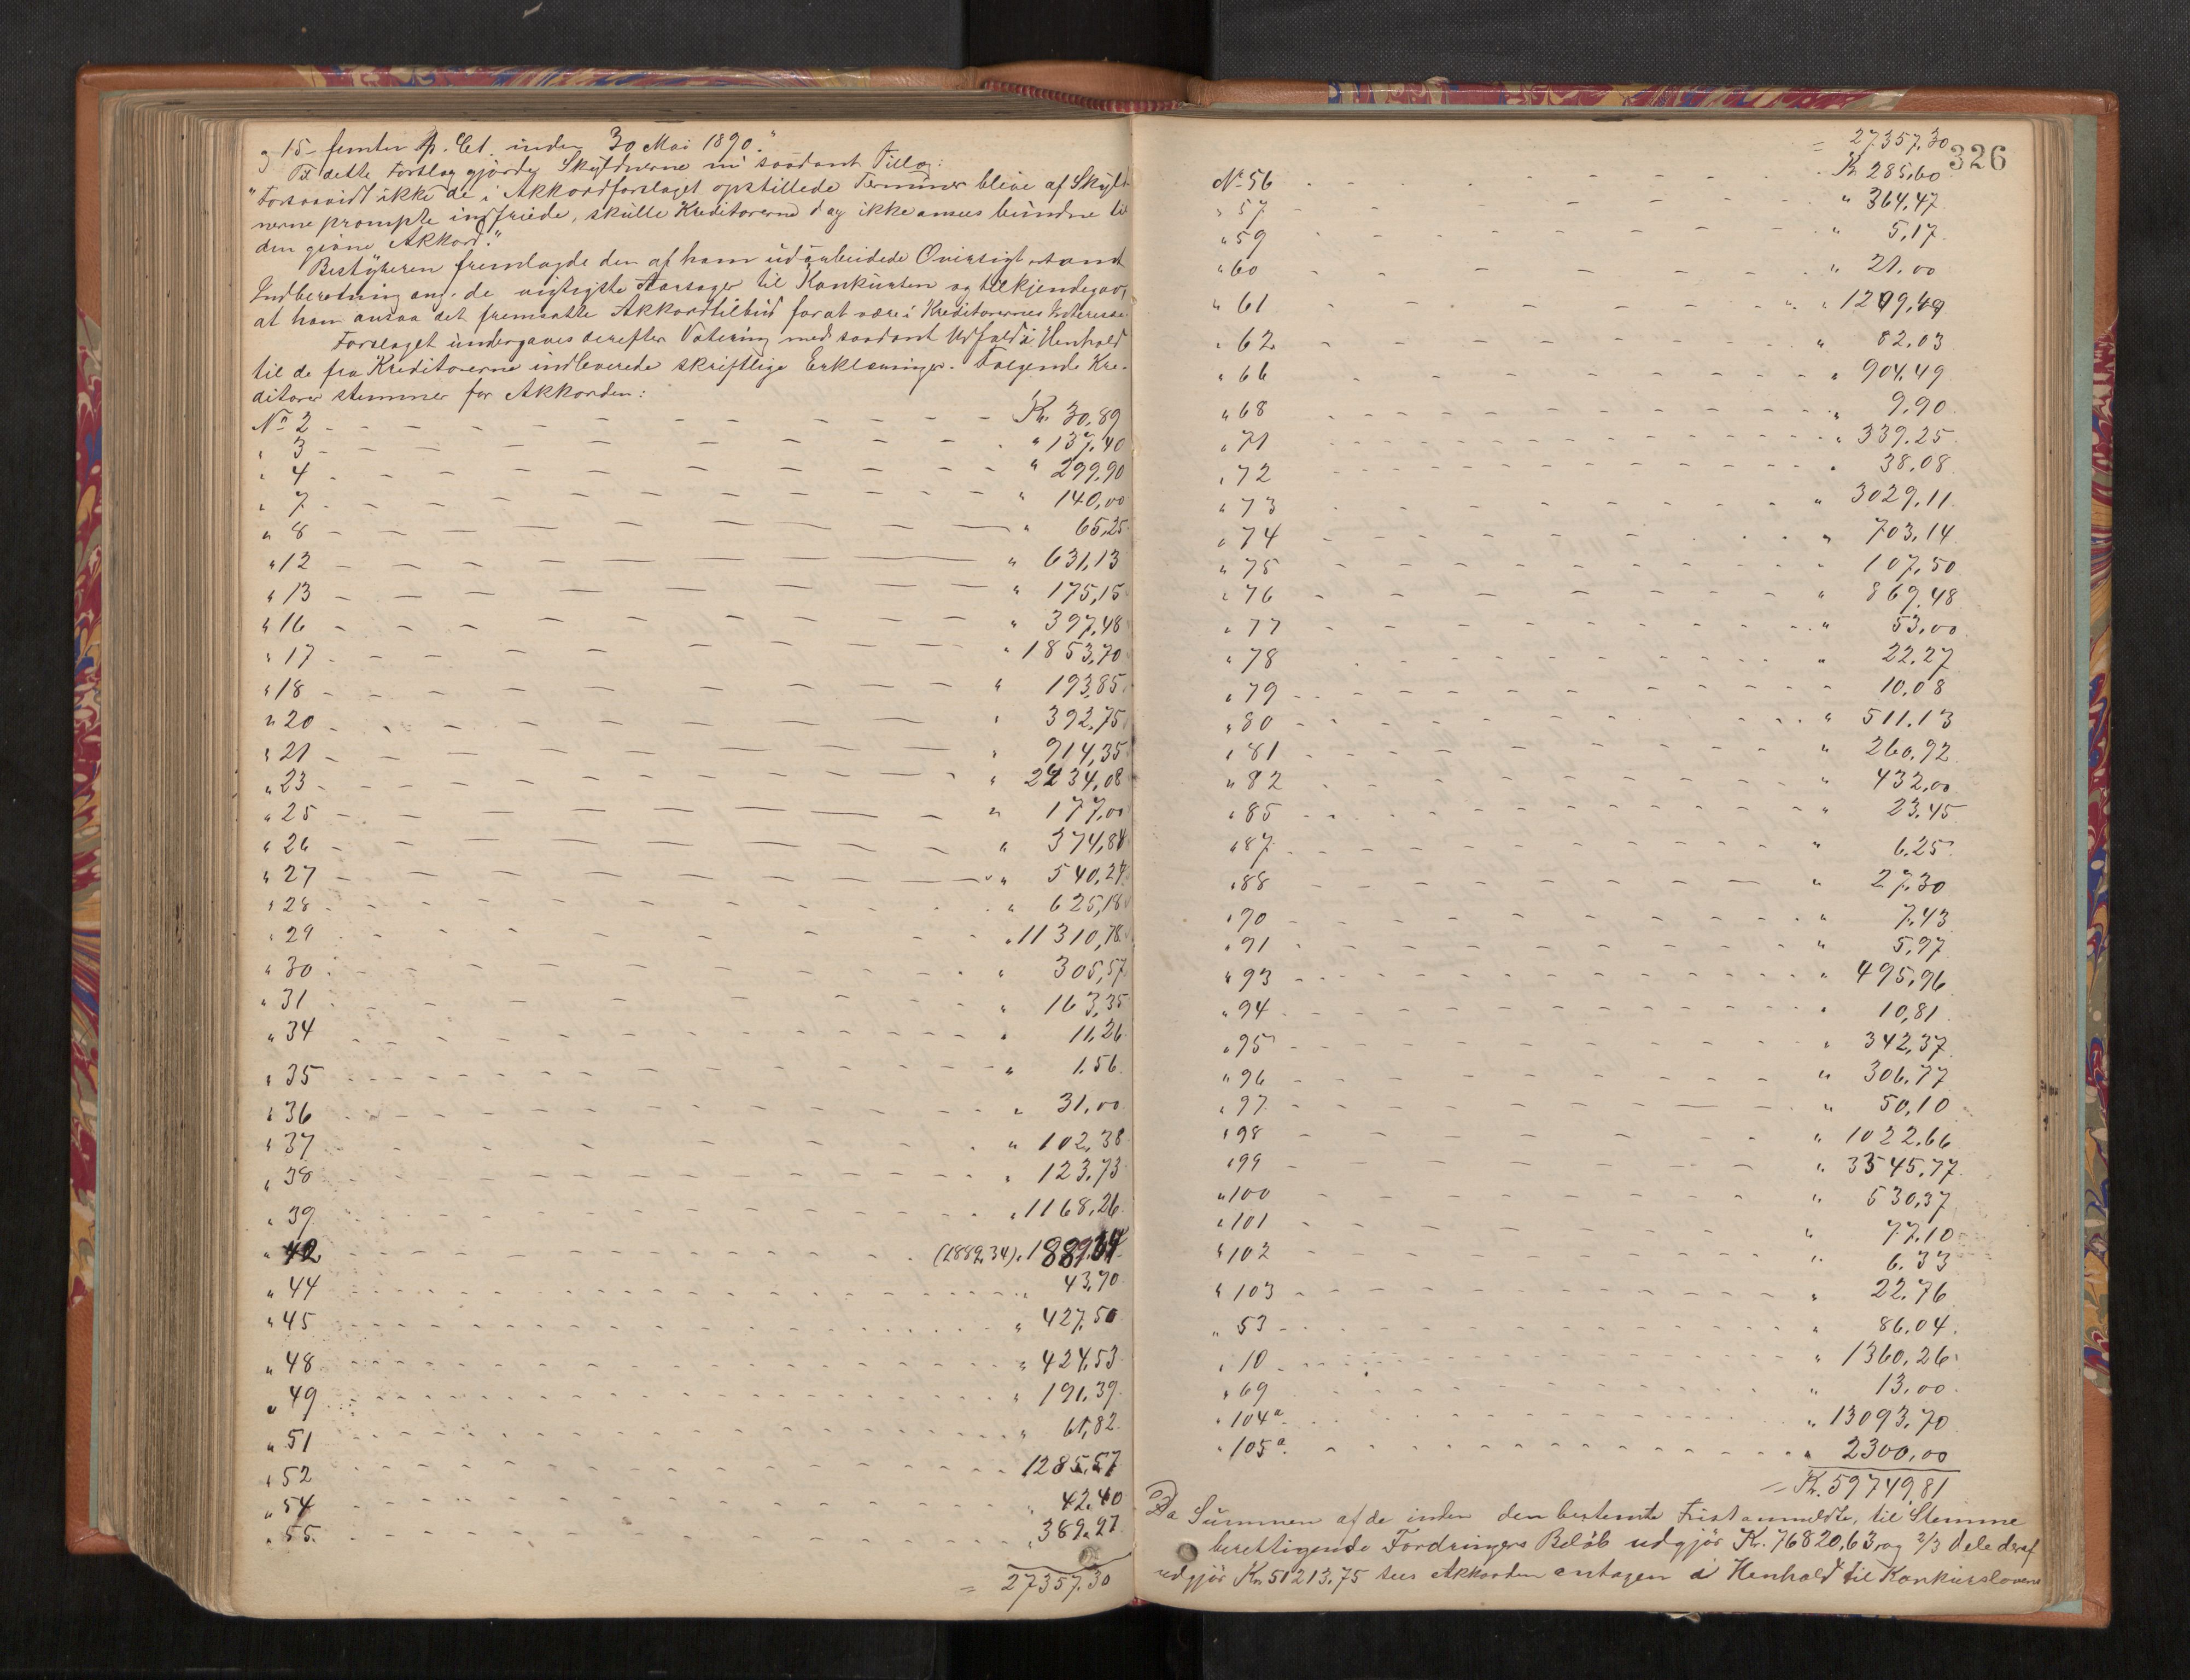 og 15 – femten p. Ct. inden 30 Mai 1890."
Til dette Forslag gjorde Skyldnerne nu saadant Tillæg:
"Forsaavidt ikke de i Akkordforslaget opstillede Terminer blive af Skyld-
nerne prompte indfriede, skulle Kreditorerne dog ikke ansees bundne til
den givne Akkord."
Bestyreren fremlagde den af ham udarbeidede Oversigt samt
Indberetning ang. de vigtigste Aarsager til Konkursen og tilkjendegav,
at han ansaa det fremsatte Akkordtilbud for at være i Kreditorernes Interesse.
Forslaget undergaves derefter Votering med saadant Udfald i Henhold
til de fra Kreditorerne indleverede skriftlige Erklæringer. Følgende Kre-
ditorer stemmer for Akkorden:
No 2 Kr. 30,89
" 3 " 137,40
" 4 " 299,90
" 7 " 140,00
" 8 " 65,25
" 12 " 631,13
" 13 " 175,15
" 16 " 397,48
" 17 " 1853,70
" 18 " 193,85
" 20 " 392,75
" 21 " 914,35
" 23 " 2234,08
" 25 " 177,00
" 26 " 374,84
" 27 " 540,27
" 28 " 625,18
" 29 " 11310,78
" 30 " 305,57
" 31 " 163,35
" 34 " 11,26
" 35 " 1.56
" 36 " 31,00
" 37 " 102,38
" 38 " 123,73
" 39 " 1168,26
" 42 (1889,34) " 1889,34
" 44 " 43,70
" 45 " 427,50
" 48 " 424,53
" 49 " 191,39
" 51 " 61,82
" 52 1285,57
" 54 " 42,40
" 55 " 389,27
= 27357,30
326
= 27357,30
No 56 Kr 285,60
" 57 " 364,47
" 59 " 5,17
" 60 " 21,00
" 61 " 1209,49
" 62 " 82,03
" 66 " 904,49
" 68 " 9,90
" 71 " 339,25
" 72 " 38,08
" 73 " 3029,11
" 74 " 703,14
" 75 " 107,50
" 76 " 869,48
" 77 " 53,00
" 78 " 22,27
" 79 " 10,08
" 80 " 511,13
" 81 " 260,92
" 82 " 432,00
" 85 " 23,45
" 87 " 6,25
" 88 " 27,30
" 90 " 7,43
" 91 " 5,97
" 93 " 495,96
" 94 " 10,81
" 95 " 342,37
" 96 " 306,77
" 97 " 50,10
" 98 " 1022,66
" 99 " 3545,77
" 100 " 530,37
" 101 " 77,10
" 102 " 6,33
" 103 " 22,76
" 53 " 86,04
" 10 " 1360,26
" 69 " 13,00
" 104a " 13093,70
" 105a " 2300,00
= Kr. 59749,81
Da Summen af de inden den bestemte Frist anmeldte, til Stemme
berettigende Fordringers Beløb udgjør Kr. 76820,63 og 2/3 Dele deraf
udgjør Kr 51213,75 sees Akkorden antagen i Henhold til Konkurslovens